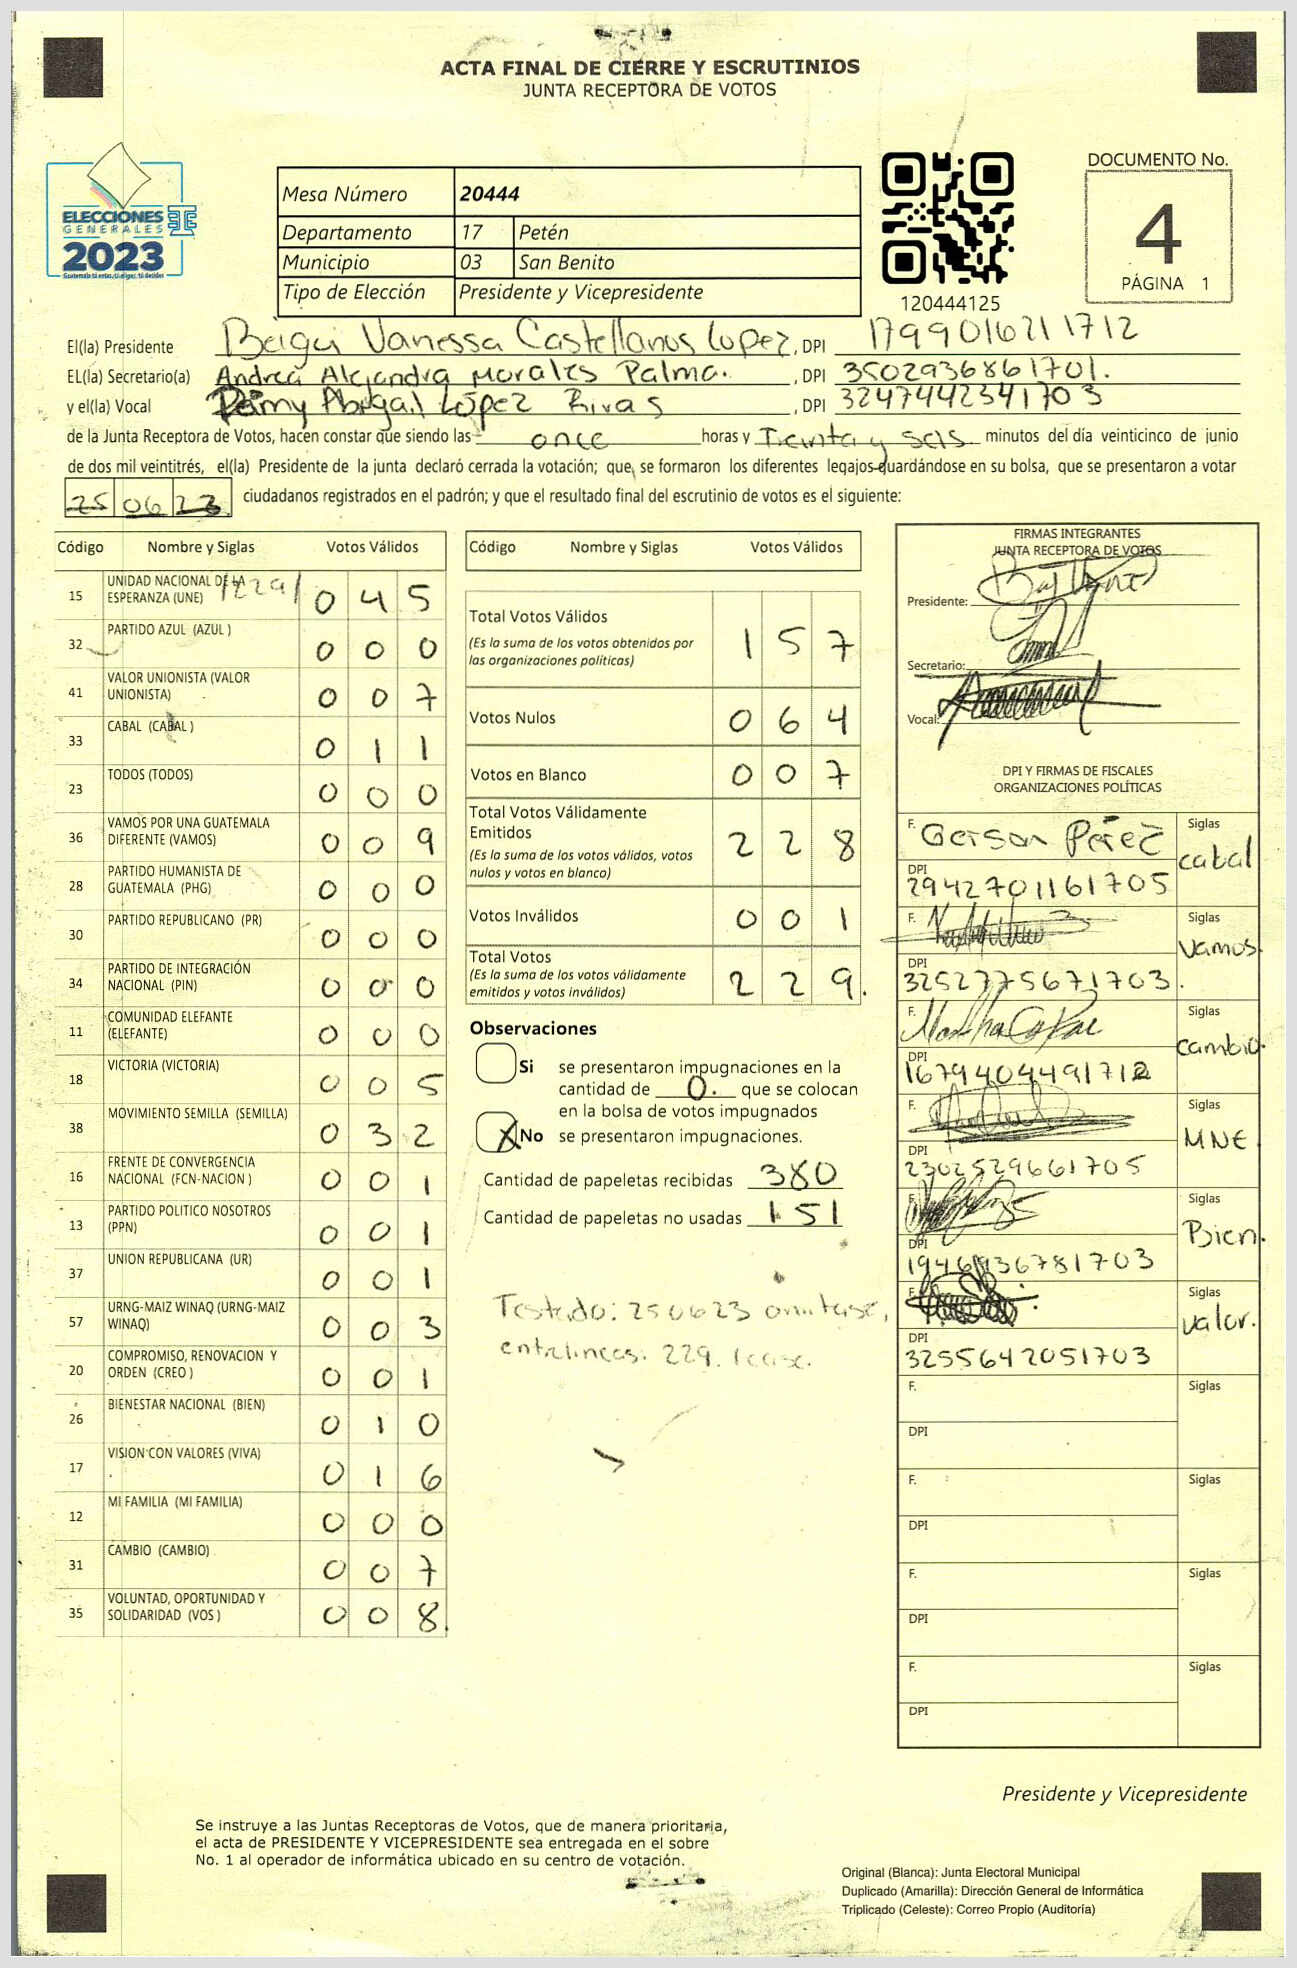 ACTA FINAL DE CIERRE Y ESCRUTINIOS
JUNTA RECEPTORA DE VOTOS
ELECCIONES
GENERALES
2023
Mesa Número 20444
Departamento 17 Petén
Municipio 03 San Benito
Tipo de Elección Presidente y Vicepresidente
120444125
DOCUMENTO No.
4
PÁGINA 1
El(la) Presidente Vanessa Castellanos Lopez, DPI 1799016211712
EL(la) Secretario(a) Andrea Alejandra Morales Palma. , DPI 3502936861701.
y el(la) Vocal Abigail López Rivas , DPI 3247442341703
de la Junta Receptora de Votos, hacen constar que siendo las once horas y Treinta y seis minutos del día veinticinco de junio
de dos mil veintitrés, el(la) Presidente de la junta declaró cerrada la votación; que, se formaron los diferentes legajos guardándose en su bolsa, que se presentaron a votar
25 06 23 ciudadanos registrados en el padrón; y que el resultado final del escrutinio de votos es el siguiente:
Código Nombre y Siglas Votos Válidos
15 UNIDAD NACIONAL DE LA ESPERANZA (UNE) /229/ 0 4 5
32 PARTIDO AZUL (AZUL ) 0 0 0
41 VALOR UNIONISTA (VALOR UNIONISTA) 0 0 7
33 CABAL (CABAL ) 0 1 1
23 TODOS (TODOS) 0 0 0
36 VAMOS POR UNA GUATEMALA DIFERENTE (VAMOS) 0 0 9
28 PARTIDO HUMANISTA DE GUATEMALA (PHG) 0 0 0
30 PARTIDO REPUBLICANO (PR) 0 0 0
34 PARTIDO DE INTEGRACIÓN NACIONAL (PIN) 0 0 0
11 COMUNIDAD ELEFANTE (ELEFANTE) 0 0 0
18 VICTORIA (VICTORIA) 0 0 5
38 MOVIMIENTO SEMILLA (SEMILLA) 0 3 2
16 FRENTE DE CONVERGENCIA NACIONAL (FCN-NACION ) 0 0 1
13 PARTIDO POLITICO NOSOTROS (PPN) 0 0 1
37 UNION REPUBLICANA (UR) 0 0 1
57 URNG-MAIZ WINAQ (URNG-MAIZ WINAQ) 0 0 3
20 COMPROMISO, RENOVACION Y ORDEN (CREO ) 0 0 1
26 BIENESTAR NACIONAL (BIEN) 0 1 0
17 VISION CON VALORES (VIVA) 0 1 6
12 MI FAMILIA (MI FAMILIA) 0 0 0
31 CAMBIO (CAMBIO) 0 0 7
35 VOLUNTAD, OPORTUNIDAD Y SOLIDARIDAD (VOS ) 0 0 8.
Código Nombre y Siglas Votos Válidos
Total Votos Válidos 1 5 7
(Es la suma de los votos obtenidos por
las organizaciones políticas)
Votos Nulos 0 6 4
Votos en Blanco 0 0 7
Total Votos Válidamente
Emitidos 2 2 8
(Es la suma de los votos válidos, votos
nulos y votos en blanco)
Votos Inválidos 0 0 1
Total Votos 2 2 9.
(Es la suma de los votos válidamente
emitidos y votos inválidos)
Observaciones
Si se presentaron impugnaciones en la
cantidad de 0. que se colocan
en la bolsa de votos impugnados
X No se presentaron impugnaciones.
Cantidad de papeletas recibidas 380
Cantidad de papeletas no usadas 151
Testado: 250623 omitase,
entrelineas: 229. lease.
FIRMAS INTEGRANTES
JUNTA RECEPTORA DE VOTOS
Presidente:
Secretario:
Vocal:
DPI Y FIRMAS DE FISCALES
ORGANIZACIONES POLÍTICAS
F. Gerson Pérez Siglas cabal
DPI 2942701161705
F. Siglas Vamos.
DPI 3252775671703.
F. Siglas cambio.
DPI 1679404491712
F. Siglas MNE
DPI 2302529661705
F. Siglas Bien.
DPI 1946936781703
F. Siglas valor.
DPI 3255642051703
F. Siglas
DPI
F. Siglas
DPI
F. Siglas
DPI
F. Siglas
DPI
Presidente y Vicepresidente
Se instruye a las Juntas Receptoras de Votos, que de manera prioritaria,
el acta de PRESIDENTE Y VICEPRESIDENTE sea entregada en el sobre
No. 1 al operador de informática ubicado en su centro de votación.
Original (Blanca): Junta Electoral Municipal
Duplicado (Amarilla): Dirección General de Informática
Triplicado (Celeste): Correo Propio (Auditoría)